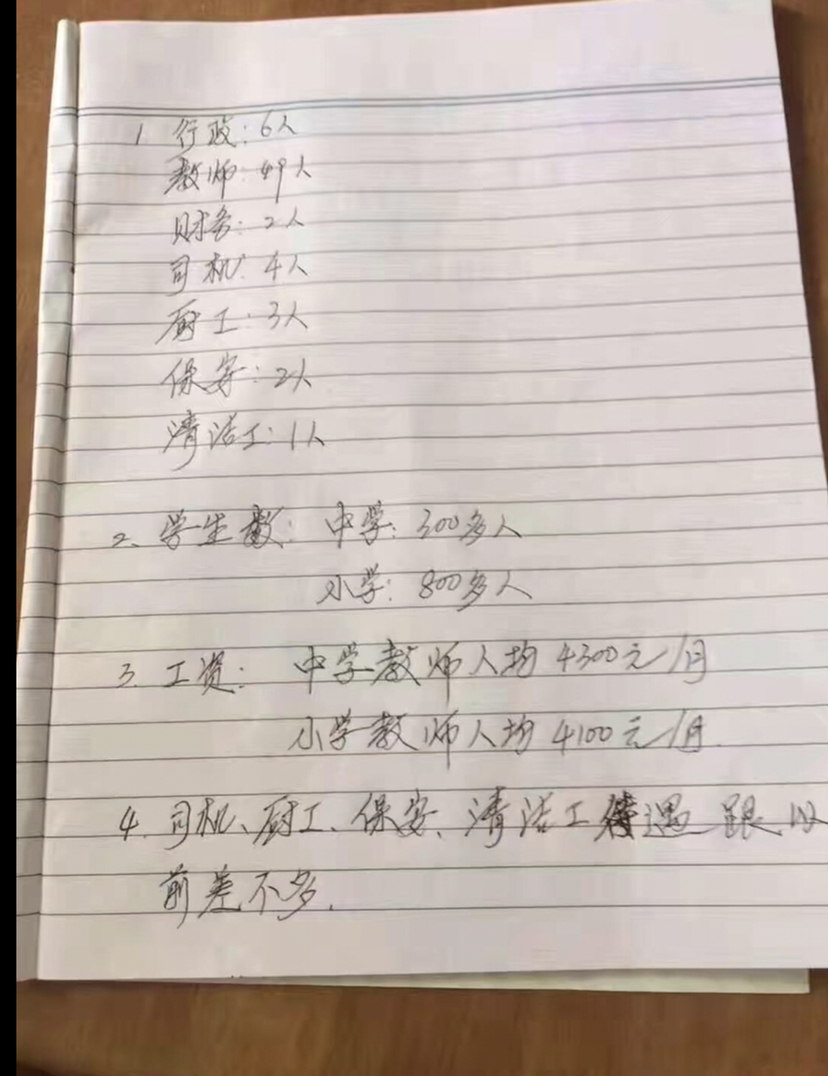 1 行政:6人
教师:49人
财务:2人
司机:4人
厨工:3人
保安:2人
清洁工:1人
2、学生数:中学:300多人
小学:800多人
3.工资:中学教师人均4300元/月
小学教师人均4100元/月.
4.司机、厨工、保安、清洁工待遇跟以
前差不多.